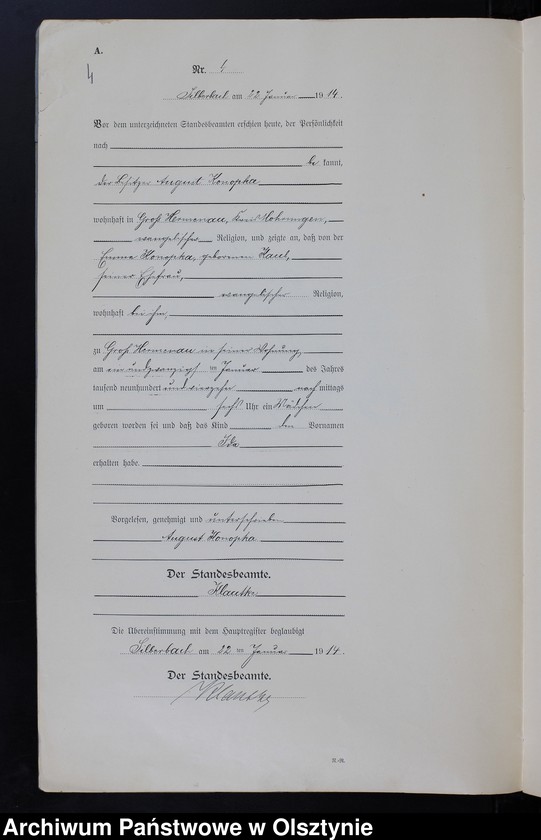 A.
4
Nr. 4
Silberbach am 22 Januar 1914.
Vor dem unterzeichneten Standesbeamten erschien heute, der Persönlichkeit
nach
be kannt,
der Besitzer August Konopka
wohnhaft in Groß Hermenau, Kreis Mohrungen,
evangelischer Religion, und zeigte an, daß von der
Emma Konopka, geborenen
seiner Ehefrau,
evangelischer Religion,
wohnhaft bei ihm,
zu Groß Hermenau in seiner Wohnung
am ein und zwanzigsten Januar des Jahres
tausend neunhundert und vierzehn nach mittags
um sechs Uhr ein Mädchen
geboren worden sei und daß das Kind den Vornamen
Ida
erhalten habe.
Vorgelesen, genehmigt und unterschrieben
August Konopka
Der Standesbeamte.
Klautke
Die Übereinstimmung mit dem Hauptregister beglaubigt
Silberbach am 22 ten Januar 1914.
Der Standesbeamte.
Klautke
Archiwum Państwowe w Olsztynie